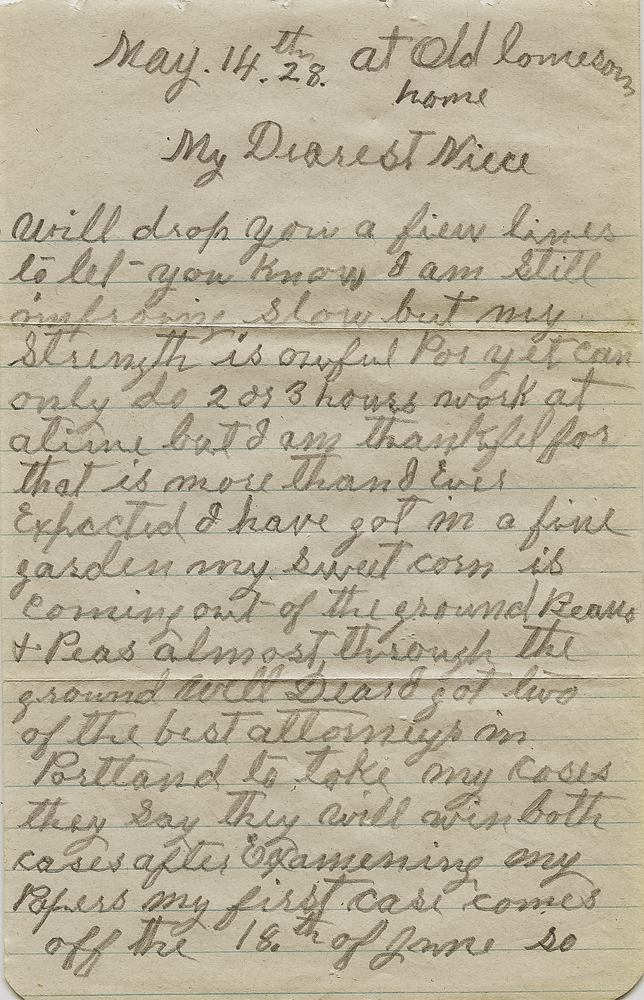 May. 14.th 28. at Old lomesom
home
My Dearest Niece
Will drop you a fiew lines
to let you Know I am Still
improving Slow but my
Strength is owful Por yet can
only do 2 or 3 hours work at
atime but I am thankfel for
that is more than I Ever
Expected I have got in a fine
garden my Sweet corn is
Coming out of the ground Beans
& Peas almost through the
ground Will Dear I got two
of the best attorneys in
Portland to take my Cases
they Say they will win both
cases after Examening my
Papers my first case comes
off the 18.th of June so